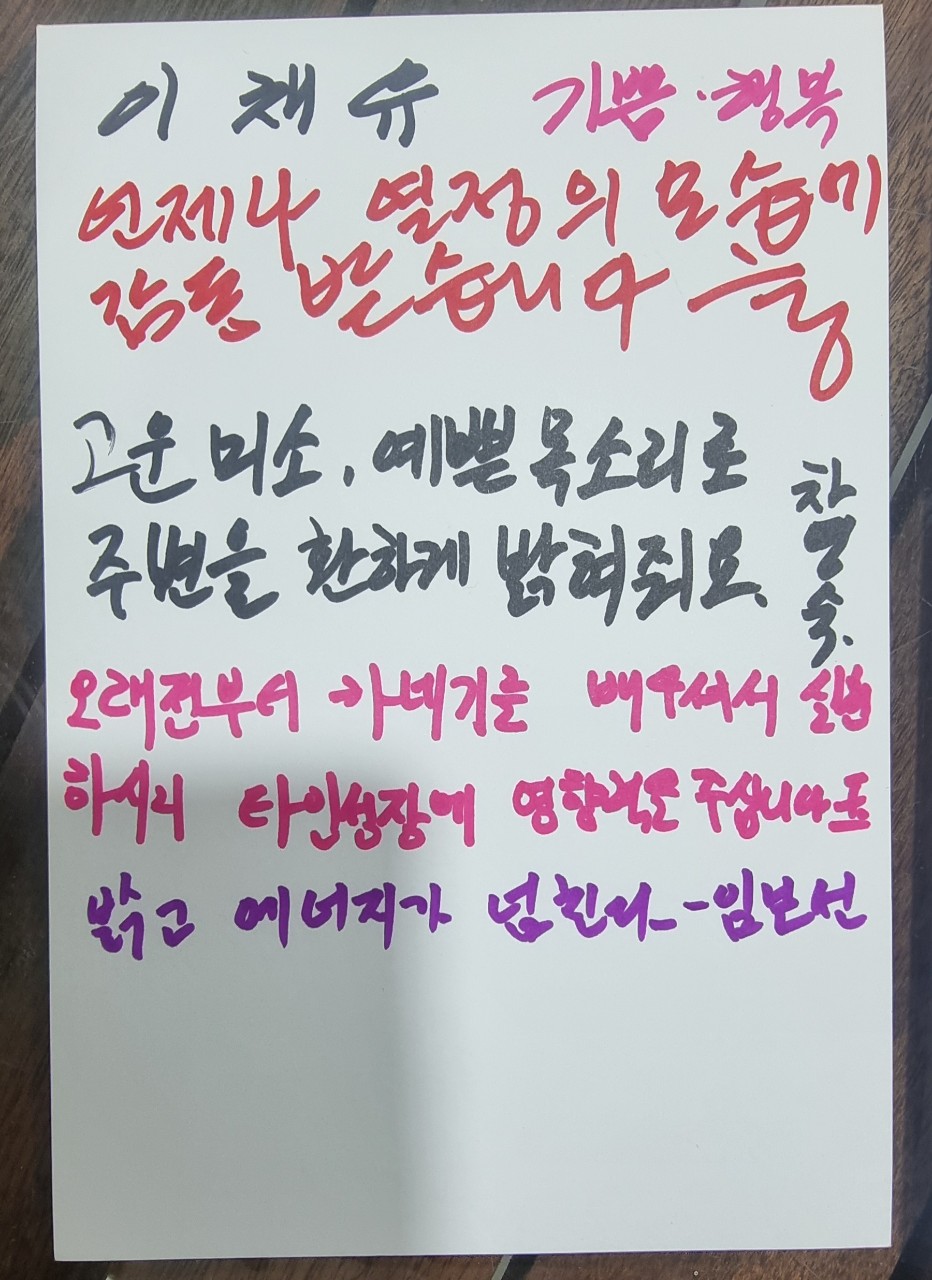 이채유 기쁨·행복
언제나 열정의 모습이
감동 받습니다
고운미소, 예쁜목소리로
주변을 환하게 밝혀줘요.
오래전부터 카네기를 배우셔서 실천
하시니 타인성장에 영향력을 주십니다
밝고 에너지가 넘친다 - 임보선